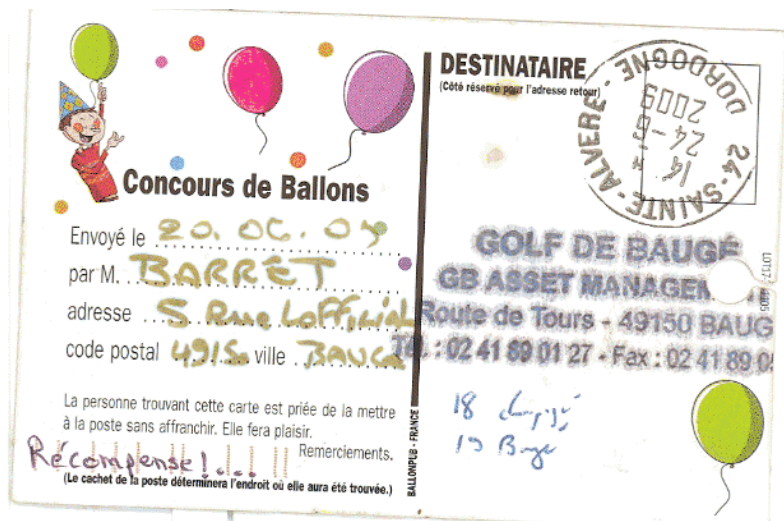 Concours de Ballons
Envoyé le 20. 06. 09
par M. BARRET
adresse 5 Rue Lofficial
code postal 49150 ville BAUGE
La personne trouvant cette carte est priée de la mettre
à la poste sans affranchir. Elle fera plaisir.
Remerciements.
Récompense!...!!
(Le cachet de la poste déterminera l'endroit où elle aura été trouvée.)
BALLONPUB - FRANCE
DESTINATAIRE
(Côté réservé pour l'adresse retour)
24-SAINTE-ALVERE-DORDOGNE
14 H
24-6-
2009
GOLF DE BAUGÉ
GB ASSET MANAGEM
Route de Tours - 49150 BAUG
Tél. : 02 41 89 01 27 - Fax : 02 41 89 0
18